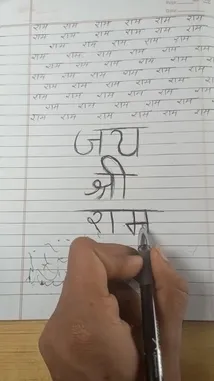 राम राम राम राम राम
राम राम राम राम राम
राम राम राम राम राम
राम राम राम राम राम
राम राम राम राम राम
राम राम राम राम राम
राम राम राम राम राम
राम राम राम राम राम
राम राम राम राम राम
जय
श्री
राम